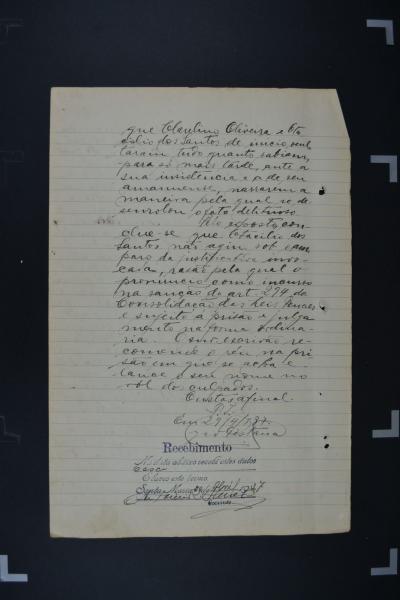 que Claudino Oliveira e Ota
cilio dos Santos de inicio ocul
taram tudo quanto sabiam,
para só mais tarde, ante a
sua insistencia e a de seu
amanuense, narrarem a
maneira pela qual se de
senrolou o fato delituoso.
Do exposto con
clue-se que Otacilio dos
Santos não agiu sob o am
paro da justificativa invo
cada, razão pela qual o
pronuncio como incurso
na sanção do art. 294 da
Consolidação das Leis Penaes
e sujeito a prisão e julga
mento na forma ordina
ria. O sr. escrivão re
comende o réu na pri
são em que se acha e
lance o seu nome no
rol dos culpados.
Custas afinal.
Em 29/4/937.
Recebimento
Na data abaixo recebi estes autos
E lavro este termo.
Santa Maria, Abril 1937